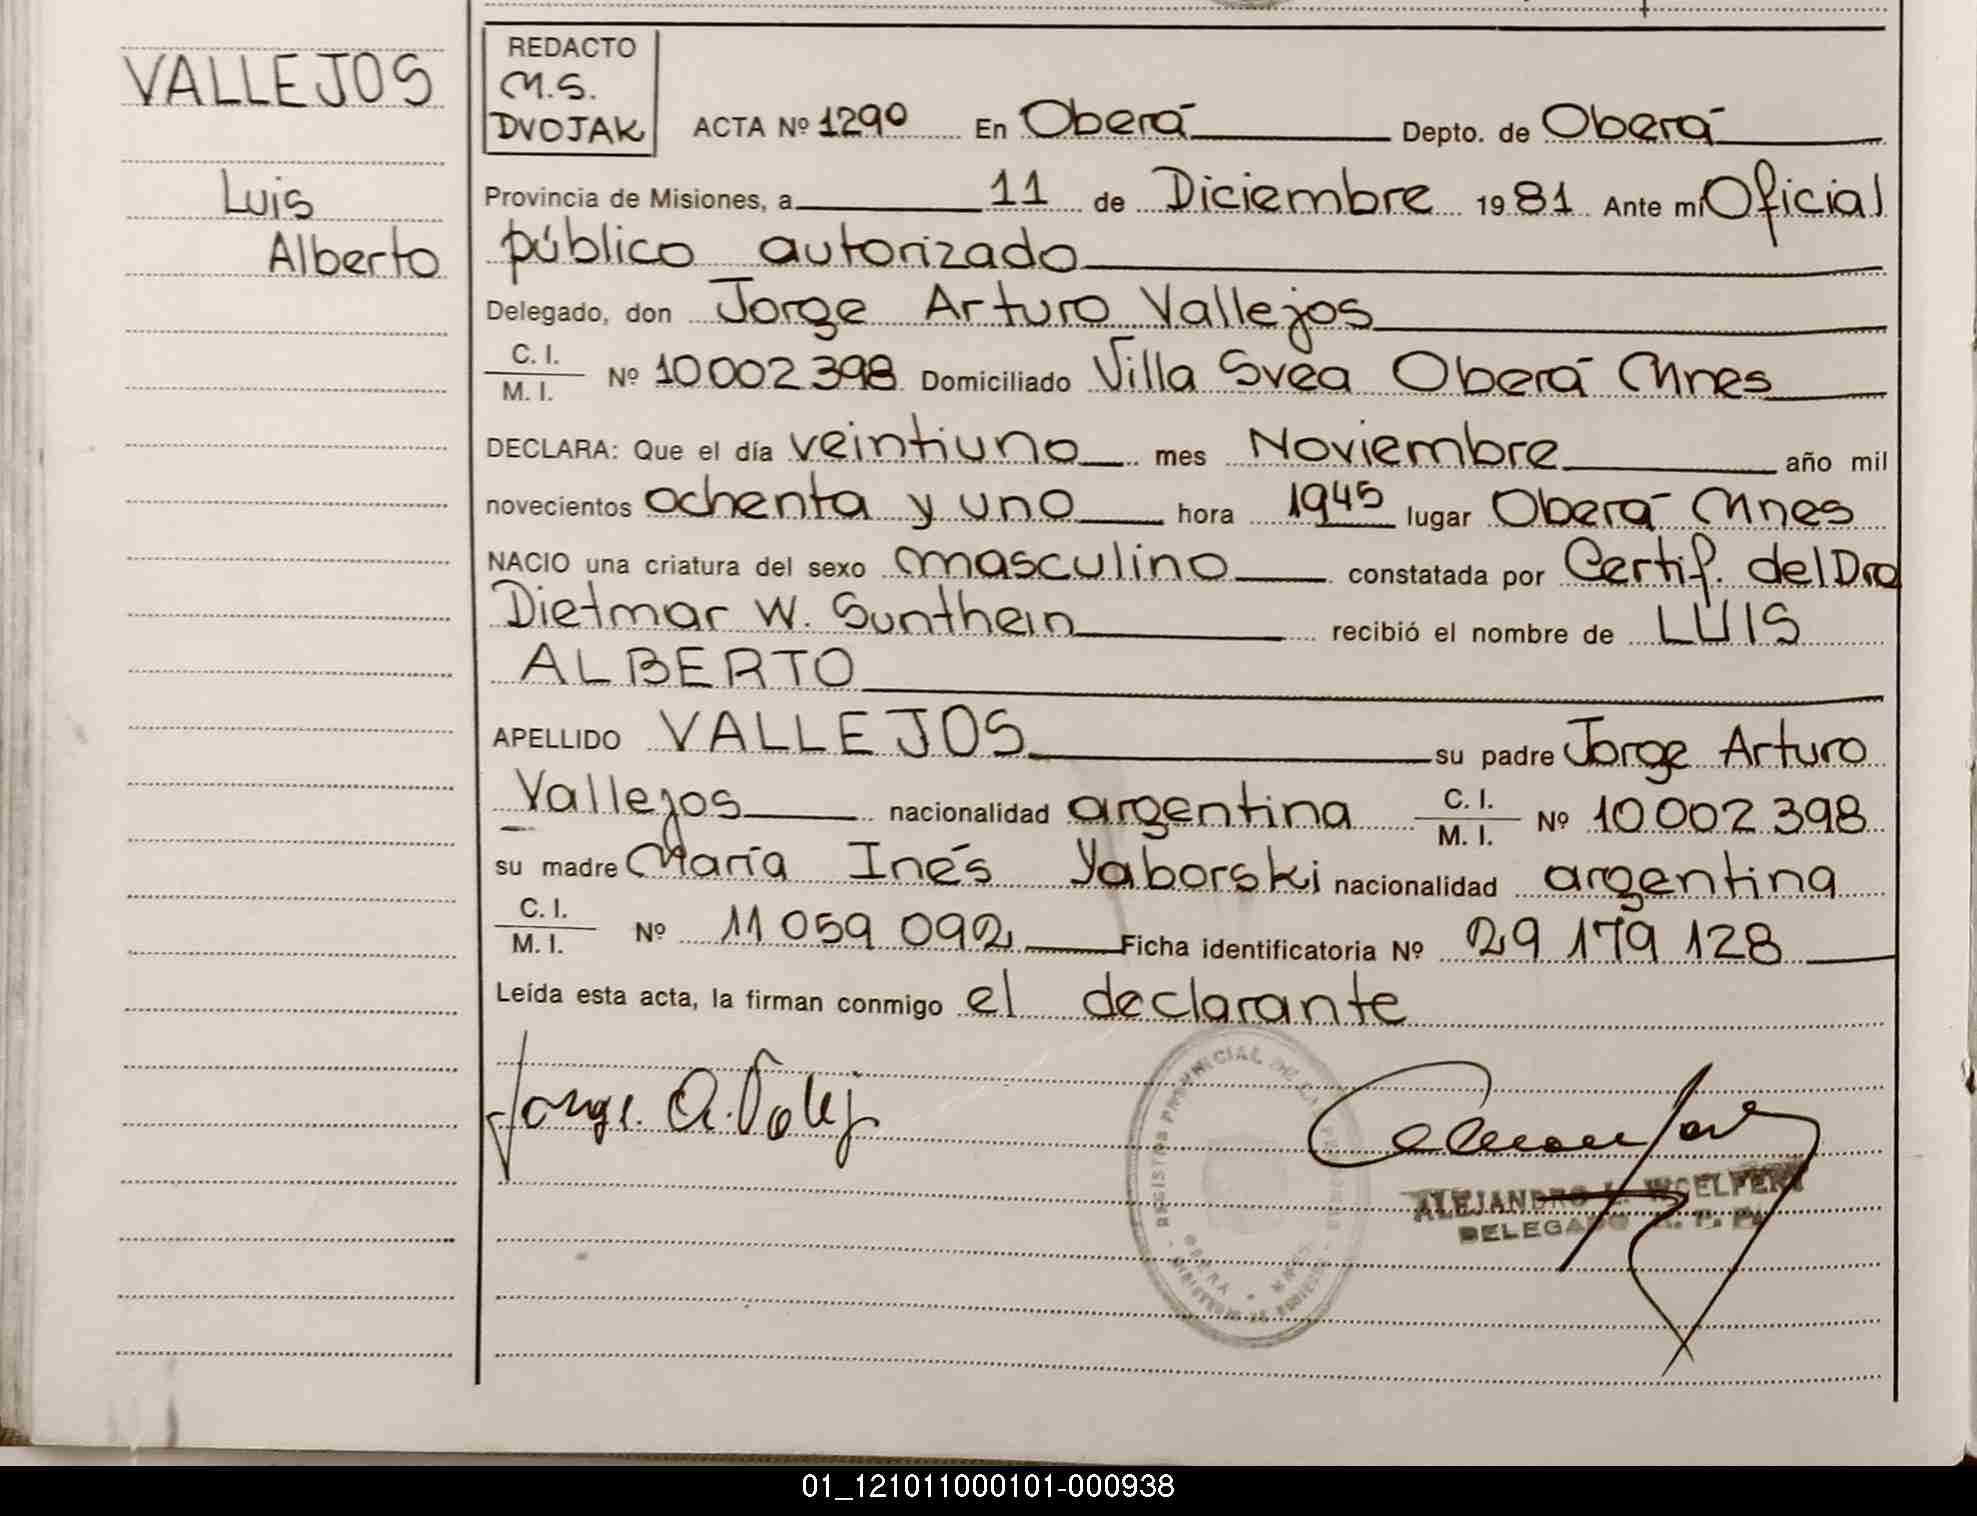 VALLEJOS
Luis
Alberto
REDACTO
M.S.
DVOJAK
ACTA Nº 1290 En Oberá Depto. de Oberá
Provincia de Misiones, a 11 de Diciembre 1981 Ante mí Oficial
público autorizado
Delegado, don Jorge Arturo Vallejos
C. I.
M. I.
Nº 10 002 398 Domiciliado Villa Svea Oberá Mnes
DECLARA: Que el día veintiuno mes Noviembre año mil
novecientos ochenta y uno hora 1945 lugar Oberá Mnes
NACIO una criatura del sexo masculino constatada por Certif. del Dro
Dietmar W. Sunthein recibió el nombre de LUIS
ALBERTO
APELLIDO VALLEJOS su padre Jorge Arturo
Vallejos nacionalidad argentina C. I. M. I. Nº 10 002 398
su madre María Inés Yaborski nacionalidad argentina
C. I.
M. I.
Nº 11 059 092 Ficha identificatoria Nº 29 179 128
Leída esta acta, la firman conmigo el declarante
Jorge A.
REGISTRO PROVINCIAL DE LAS PERSONAS
OBERA
ALEJANDRO L. WOELFERT
DELEGADO R. P. P.
01_121011000101-000938